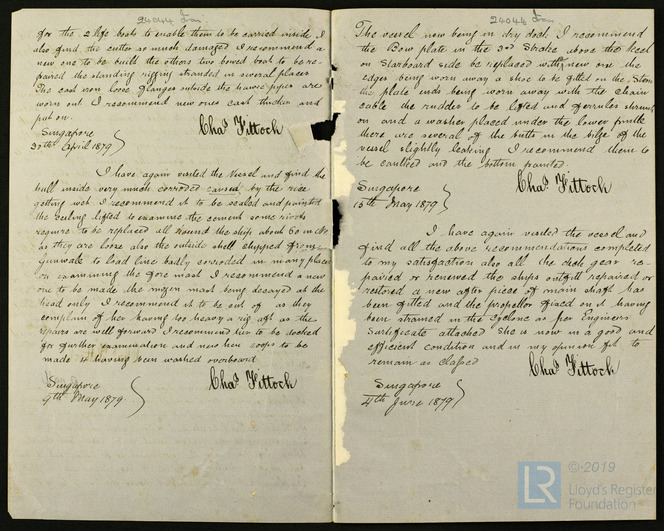 24044 Iron
for the 2 life boats to enable them to be carried inside I
also find the cutter so much damaged I recommend a
new one to be built the others two bowed boat to be re-
paired the standing rigging stranded in several places
The cast iron loose flanges outside the hawse pipes are
worn out I recommend new ones cast thicker and
put on.
Singapore
30th April 1879
Chas Fittock
I have again visited the Vessel and find the
hull inside very much corroded caused by the rice
getting wet I recommend it to be scaled and painted
the ceiling lifted to examine the cement some rivets
require to be replaced all round the ship about 60 in No
as they are loose also the outside shell stripped from
Gunwale to load line badly corroded in many places
on examining the fore mast I recommend a new
one to be made the mizen mast being decayed at the
head only I recommend it to be cut off as they
complain of her having too heavy a rig aft as the
repairs are well forward I recommend her to be docked
for further examination and new hen coops to be
made as having been washed overboard
Singapore
9th May 1879
Chas Fittock
24044 Iron
The vessel now being in dry dock I recommend
the Bow plate in the 3rd Strake above the keel
on Starboard side be replaced with new one the
edges being worn away a shoe to be fitted on the Stem
the plate ends being worn away with the chain
cable the rudder to be lifted and ferrules shrunk
on and a washer placed under the lower pintle
there are several of the butts in the bilge of the
vessel slightly leaking I recommend them to
be caulked and the bottom painted.
Singapore
15th May 1879
Chas Fittock
I have again visited the vessel and
find all the above recommendations completed
to my satisfaction also all the deck gear re-
paired or renewed the ships outfit repaired or
restored a new after piece of main shaft has
been fitted and the propellor fixed on it having
been strained in the Cyclone as per Engineers
Certificate attached She is now in a good and
efficient condition and in my opinion fit to
remain as Classed
Singapore
4th June 1879
Chas Fittock
LR
© 2019
Lloyd's Register
Foundation